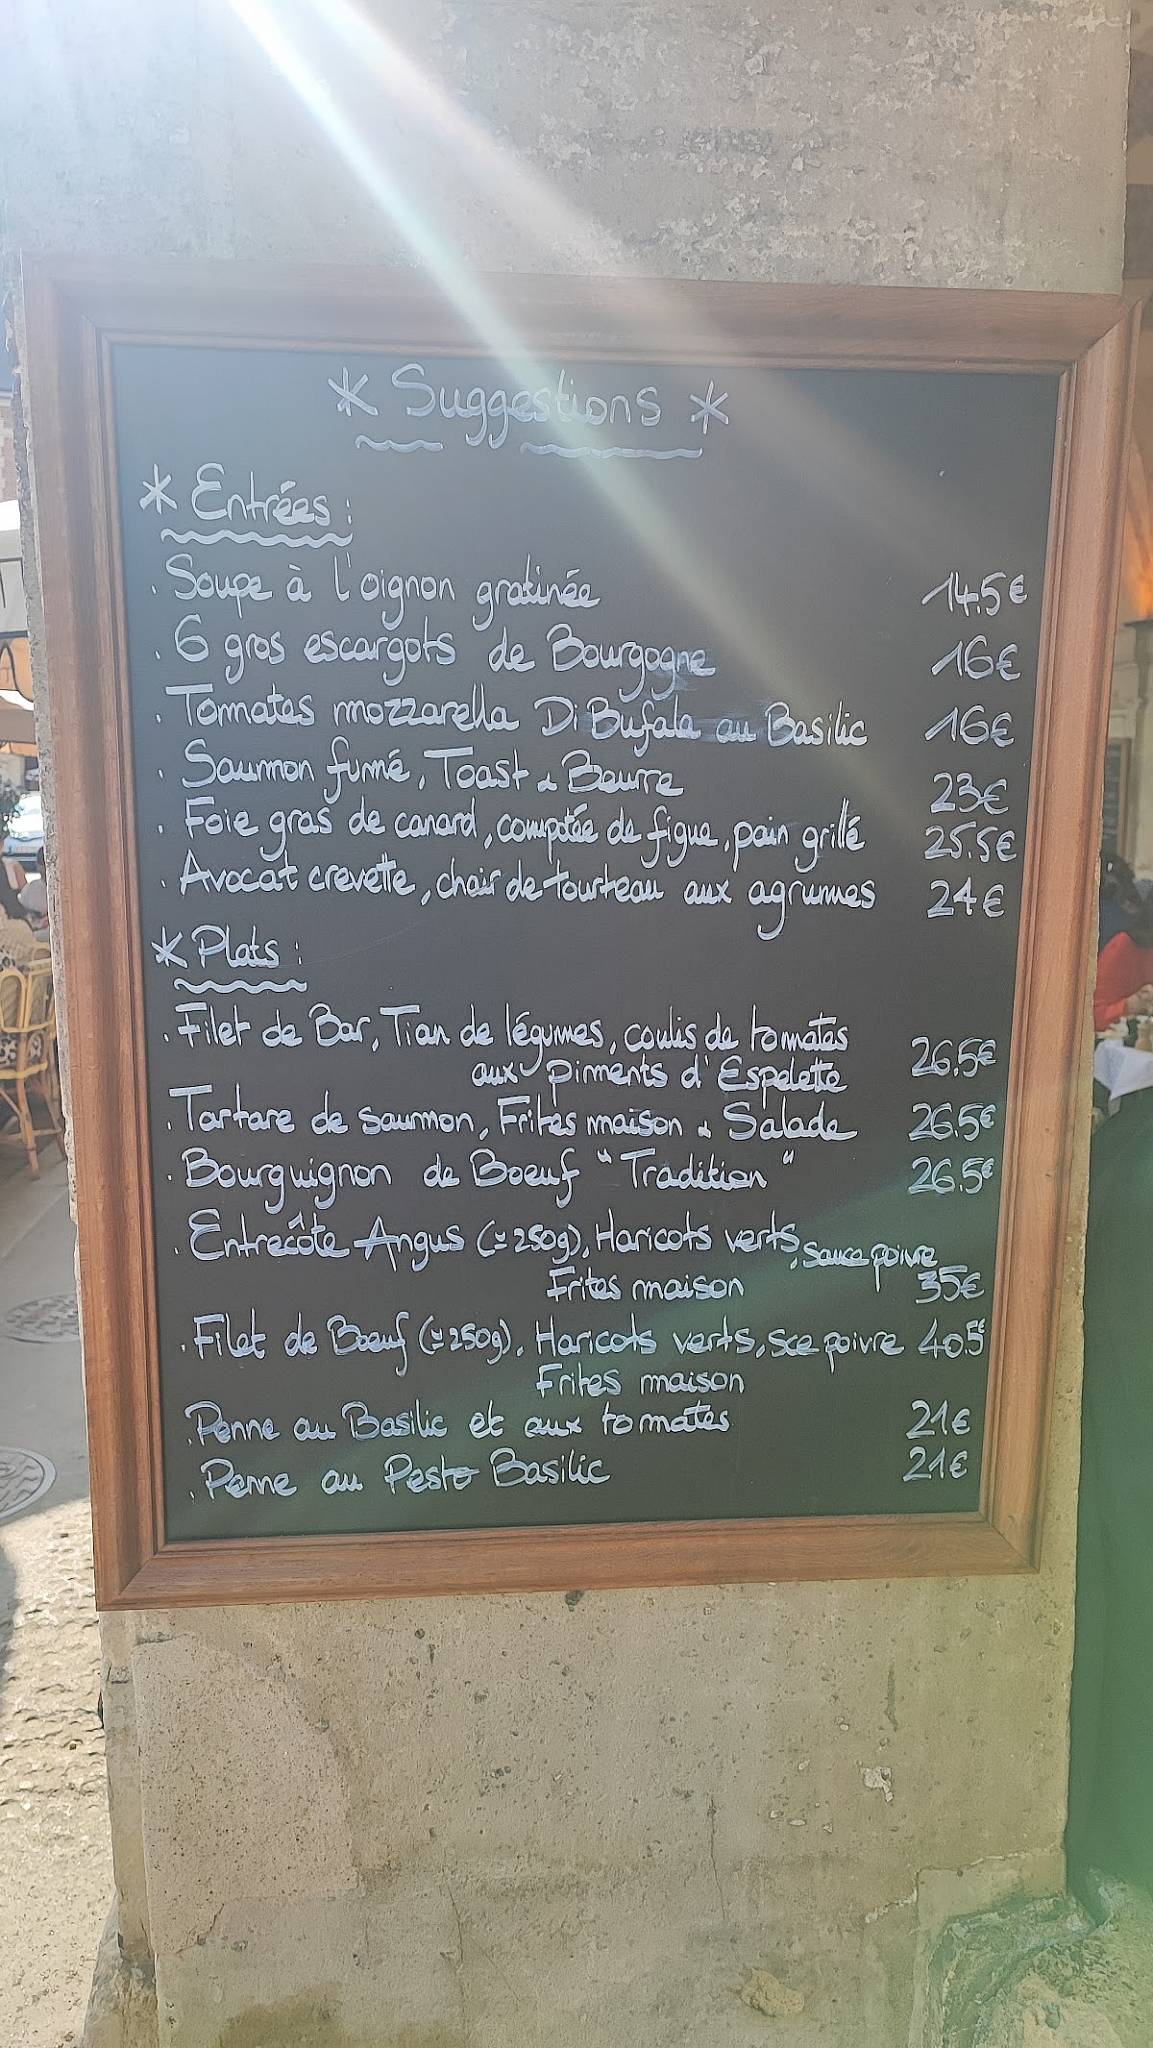 * Suggestions *
* Entrées :
. Soupe à l'oignon gratinée 14.5€
. 6 gros escargots de Bourgogne 16€
. Tomates mozzarella Di Bufala au Basilic 16€
. Saumon fumé, Toast & Beurre 23€
. Foie gras de canard, compotée de figue, pain grillé 25.5€
. Avocat crevette, chair de tourteau aux agrumes 24€
* Plats :
. Filet de Bar, Tian de légumes, coulis de tomates
aux Piments d'Espelette 26.5€
. Tartare de saumon, Frites maison & Salade 26.5€
. Bourguignon de Boeuf "Tradition" 26.5€
. Entrecôte Angus (≃250g), Haricots verts, sauce poivre
Frites maison 35€
. Filet de Boeuf (≃250g), Haricots verts, sce poivre 40.5€
Frites maison
. Penne au Basilic et aux tomates 21€
. Penne au Pesto Basilic 21€